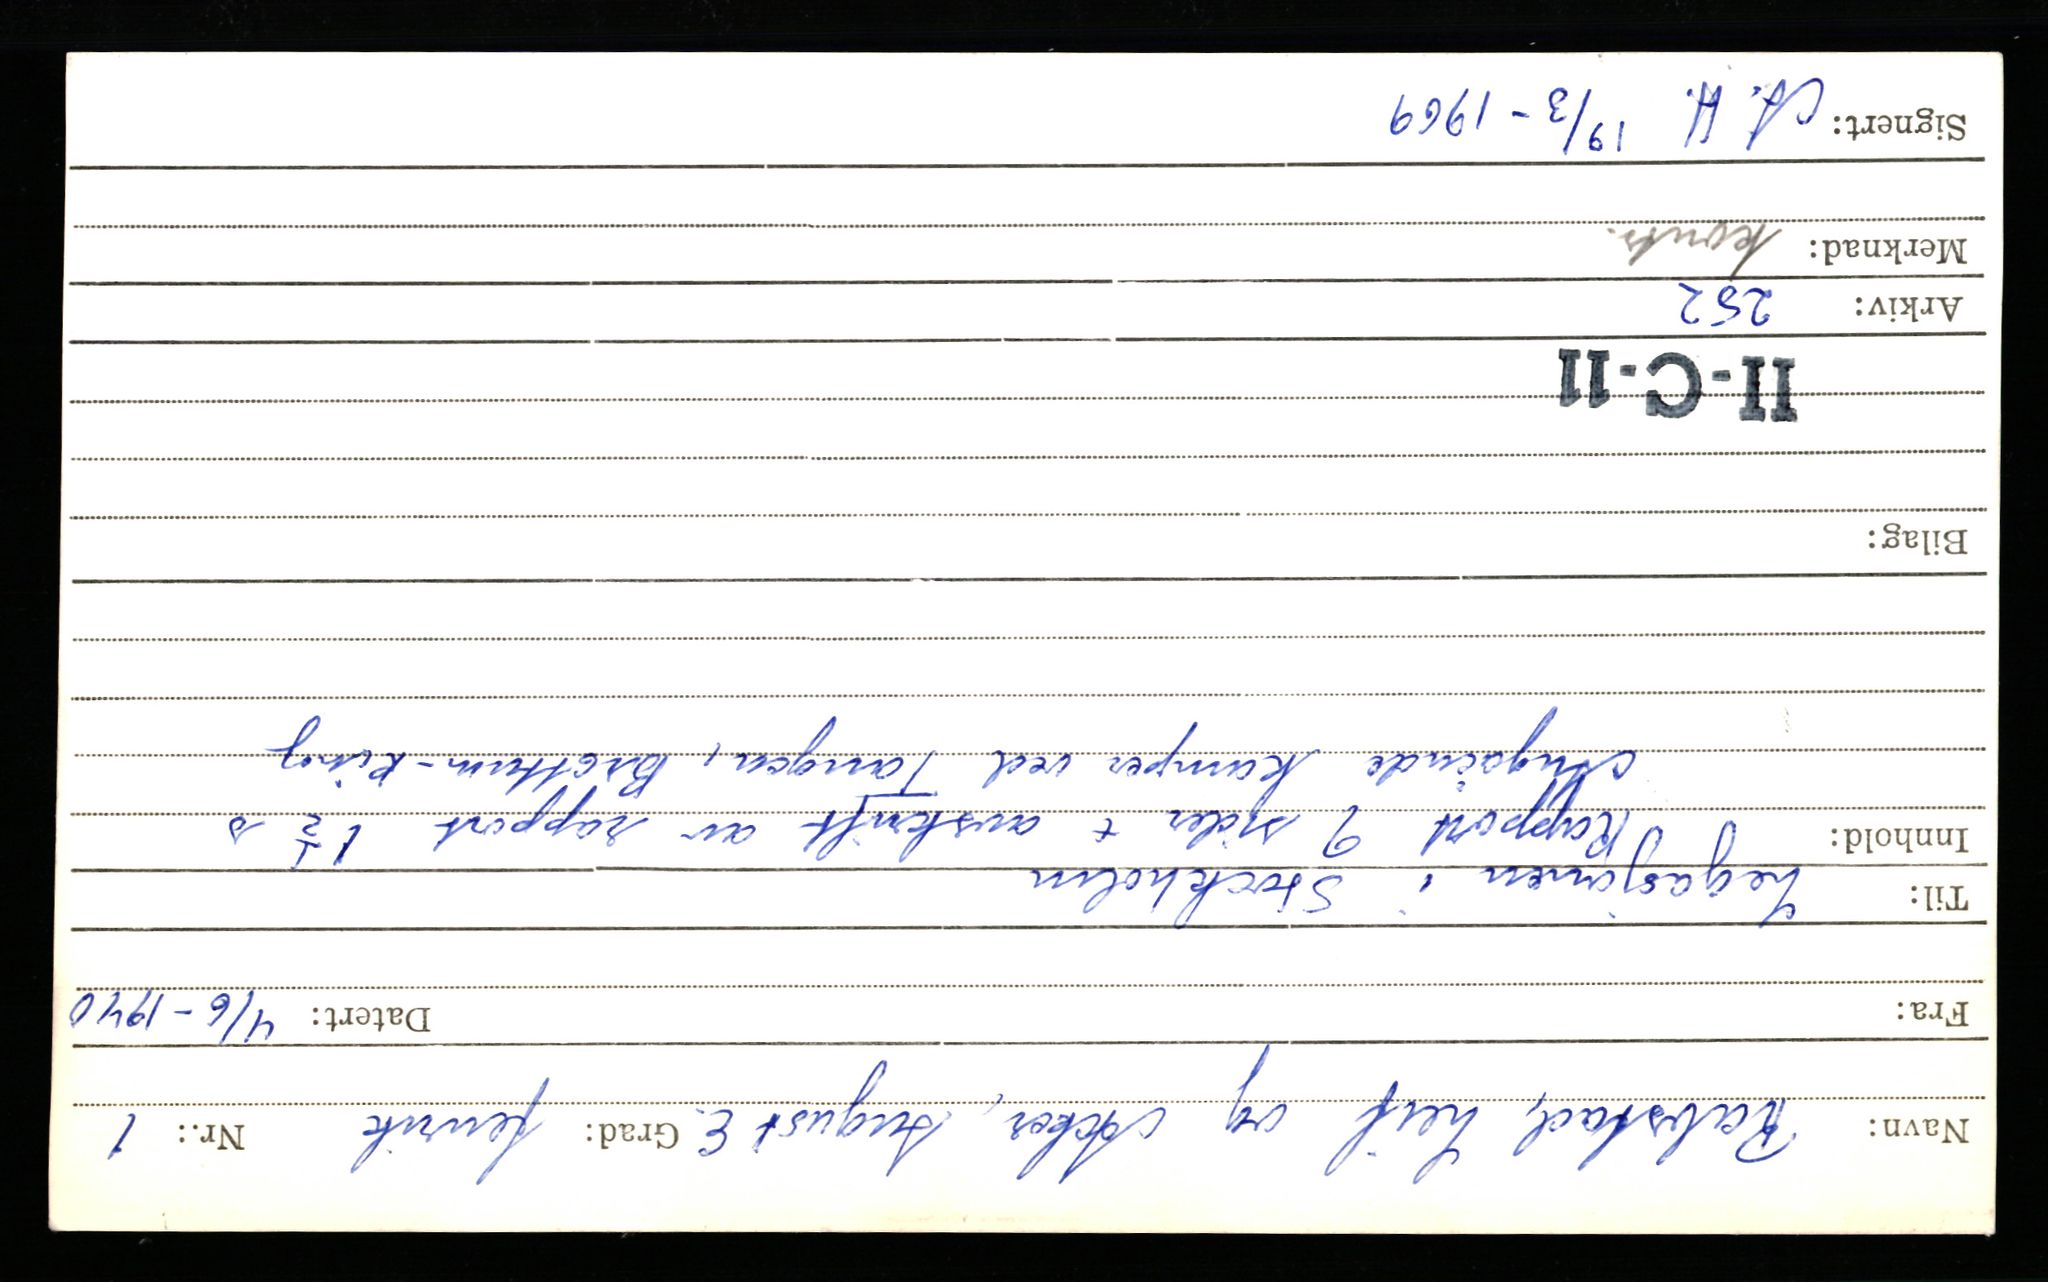 Navn: Rabstad, Leif og Acker, August E. Grad: fenrik Nr.: 1
Fra: Datert: 4/6 - 1940
Til: Legasjonen i Stockholm
Innhold: Rapport 9 sider + avskrift av rapport 1 ½ s
Angående kamper ved Tangen, Brøttum - Ring
Bilag:
II-C-11
Arkiv: 252
Merknad: kontr.
Signert: A. H. 19/3 - 1969